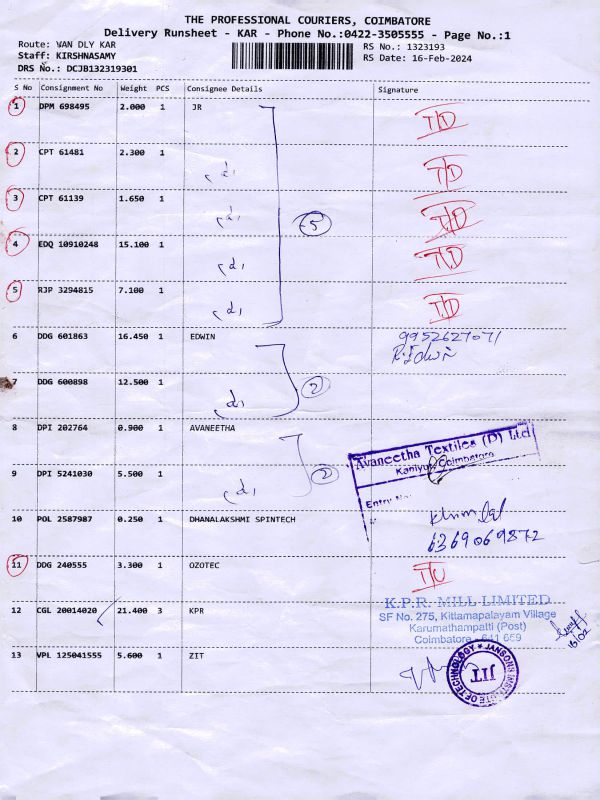 THE PROFESSIONAL COURIERS, COIMBATORE
Delivery Runsheet - KAR - Phone No.:0422-3505555 - Page No.:1
Route: VAN DLY KAR RS No.: 1323193
Staff: KIRSHNASAMY RS Date: 16-Feb-2024
DRS No.: DCJB132319301
S No Consignment No Weight PCS Consignee Details Signature
1 DPM 698495 2.000 1 JR T/D
2 CPT 61481 2.300 1 T/D
3 CPT 61139 1.650 1 T/D
5
4 EDQ 10910248 15.100 1 T/D
5 RJP 3294815 7.100 1 T/D
6 DDG 601863 16.450 1 EDWIN 9952627071
R. Edwin
7 DDG 600898 12.500 1 2
8 DPI 202764 0.900 1 AVANEETHA
Avaneetha Textiles (P) Ltd
Kaniyur, Coimbatore
9 DPI 5241030 5.500 1 2
Entry No.
10 POL 2587987 0.250 1 DHANALAKSHMI SPINTECH
6369069872
11 DDG 240555 3.300 1 OZOTEC
12 CGL 20014020 21.400 3 KPR
K.P.R. MILL LIMITED
SF No. 275, Kittamapalayam Village
Karumathampatti (Post)
Coimbatore - 641 659
16/02
13 VPL 125041555 5.600 1 ZIT
JANSONS INSTITUTE OF TECHNOLOGY
JIT